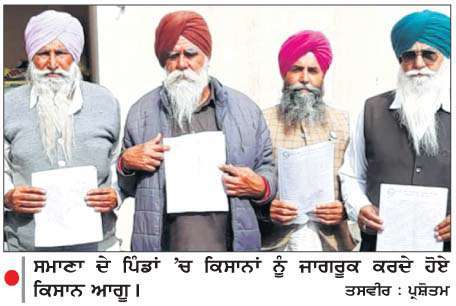 ਸਮਾਣਾ ਦੇ ਪਿੰਡਾਂ 'ਚ ਕਿਸਾਨਾਂ ਨੂੰ ਜਾਗਰੂਕ ਕਰਦੇ ਹੋਏ
ਕਿਸਾਨ ਆਗੂ। ਤਸਵੀਰ : ਪ੍ਰਸ਼ੋਤਮ